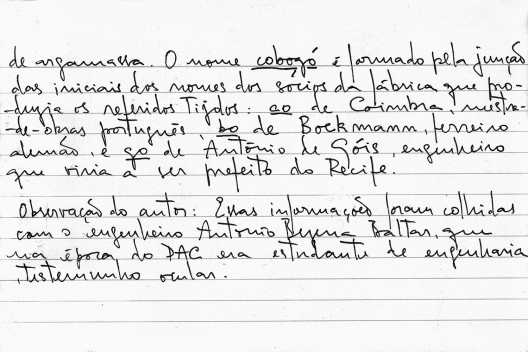 de argamassa. O nome cobogó é formado pela junção
das iniciais dos nomes dos sócios da fábrica que pro-
-duzia os referidos Tijolos: co de Coimbra, mestre-
-de-obras português, bo de Bockmann, ferreiro
alemão, e go de Antônio de Góis, engenheiro
que viria a ser prefeito do Recife.
Observação do autor: Essas informações foram colhidas
com o engenheiro Antonio Baltar, que
na época do PAC era estudante de engenharia
, testemunho ocular.